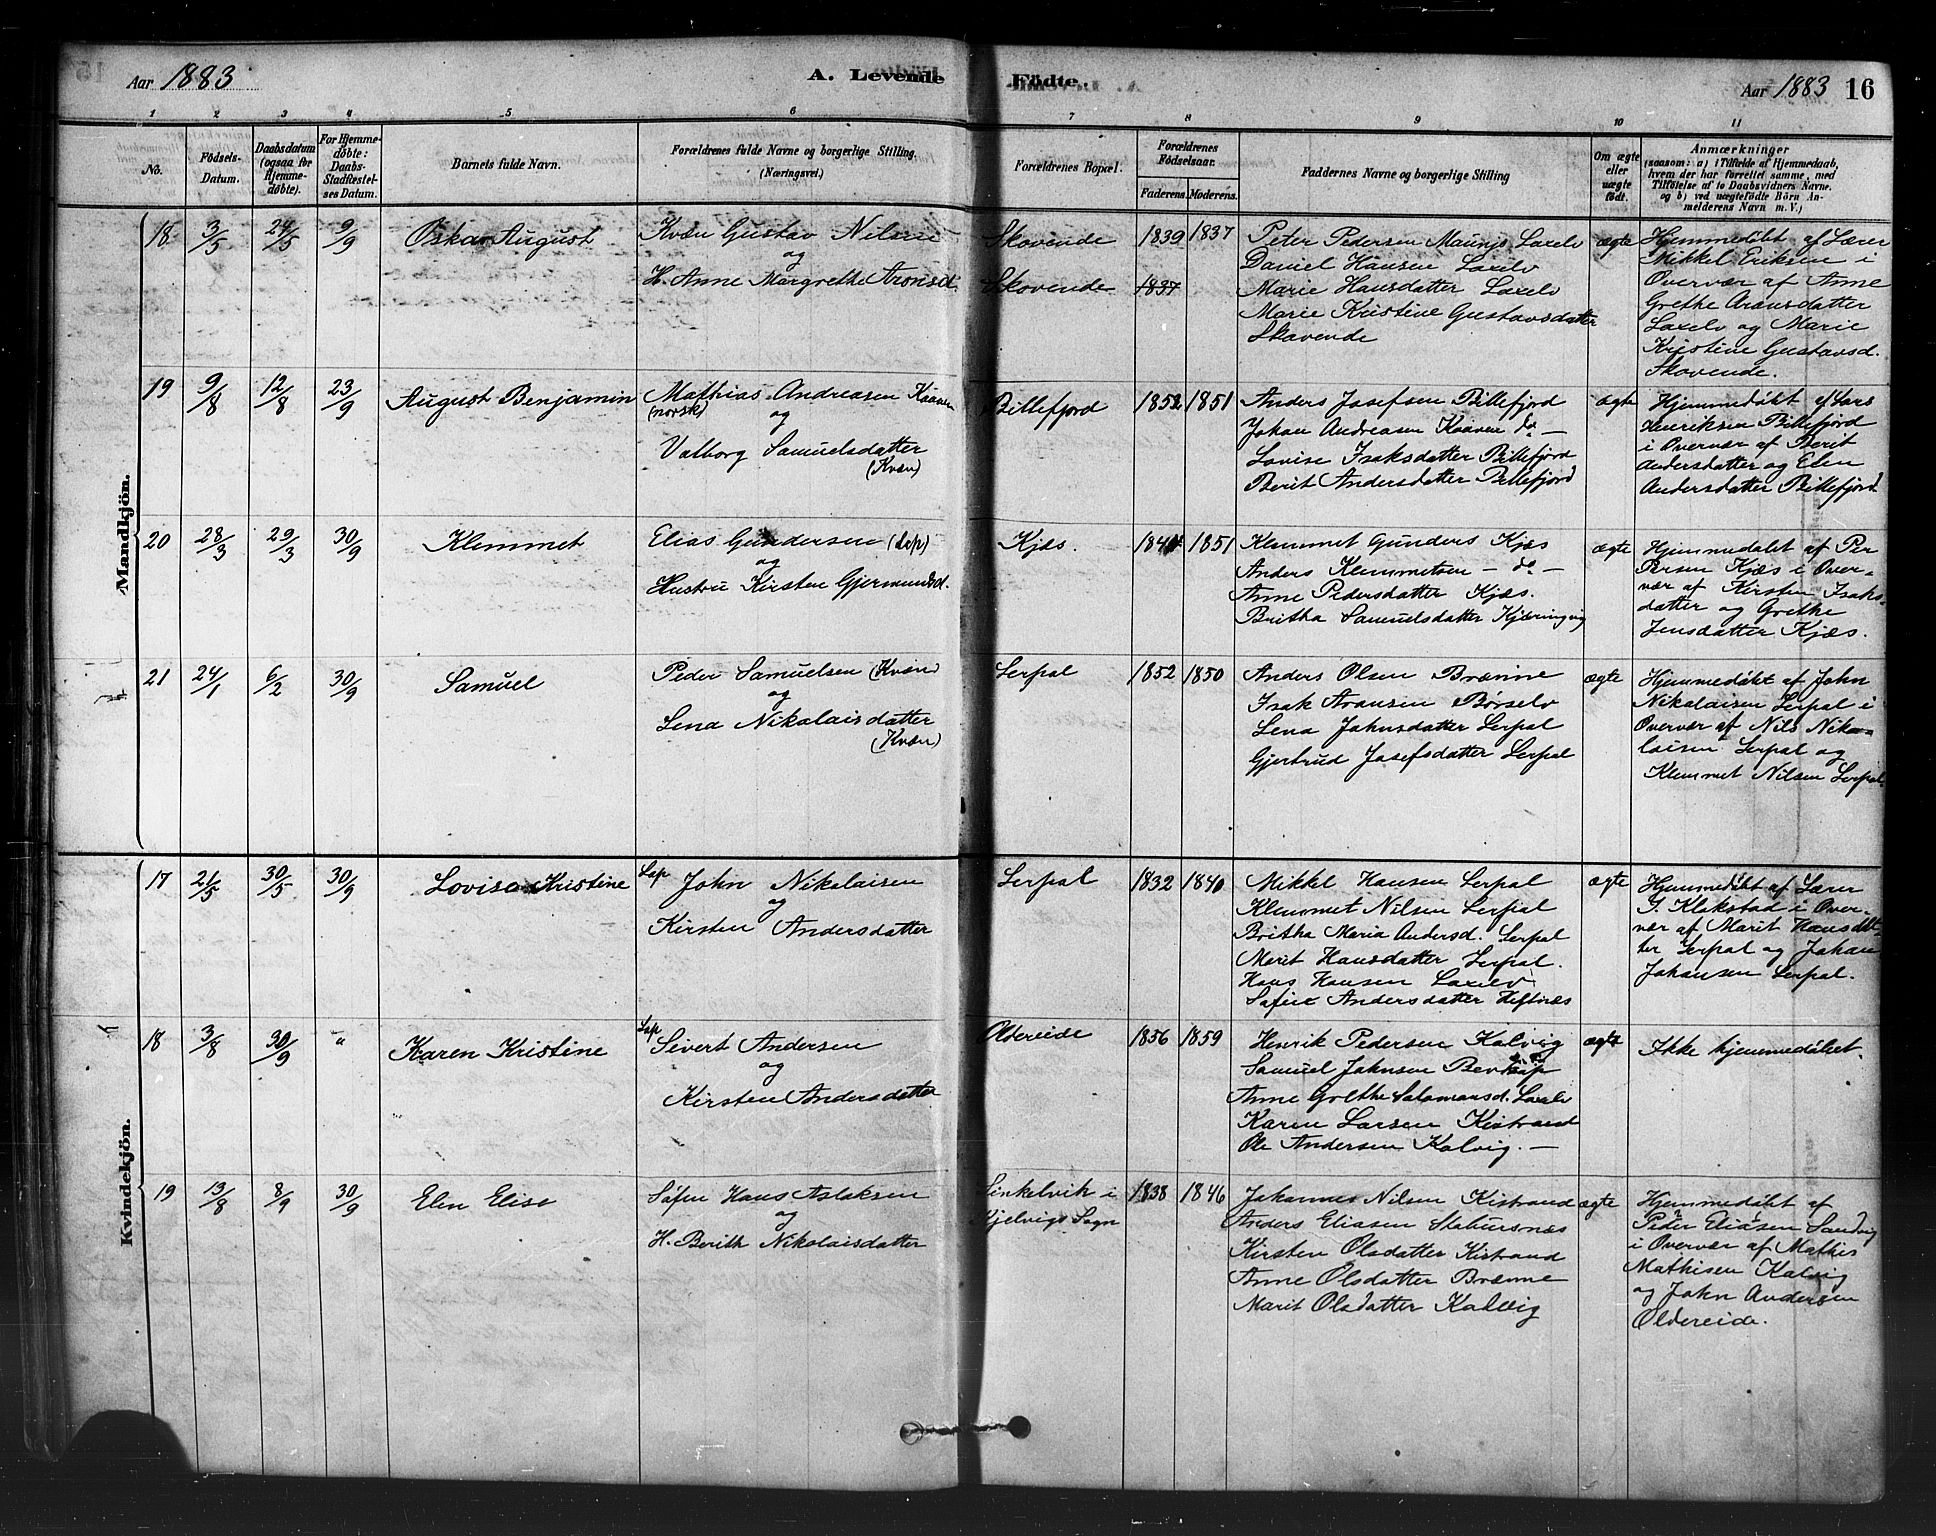 Aar 1883
A. Levende Fødte.
Aar 1883 16
1 2 3 4 5 6 7 8 9 10 11
No.
Födsels-Datum.
Daabsdatum (ogsaa for Hjemmedøbte).
For Hjemmedøbte: Daabs-Stadfæstelses Datum.
Barnets fulde Navn.
Forældrenes fulde Navne og borgerlige Stilling. (Næringsvei.)
Forældrenes Bopæl.
Forældrenes Födselsaar.
Faderens. Moderens.
Faddernes Navne og borgerlige Stilling
Om ægte eller uægte født.
Anmærkninger
(saasom: a) i Tilfælde af Hjemmedaab, hvem der har forrettet samme, med Tilföielse af to Daabsvidners Navne, og b) ved uægtefödte Börn Anmelderens Navn m. V.)
Mandkjön.
18 3/5 24/5 9/9 Oskar August
Kvæn Gustav Nilsen
og
H. Anne Margrethe Aronsdt.
Skovende 1839 1837
Skovende 1837
Peter Pedersen Maunis Laxelv
Daniel Hansen Laxelv
Marie Hansdatter Laxelv
Marie Kristine Gustavsdatter
Skovende
ægte
Hjemmedøbt af Lærer
Mikkel Eriksen i
Overvær af Anne
Grethe Aronsdatter
Laxelv og Marie
Kristine Gustavsd.
Skovende.
19 9/8 12/8 23/9 August Benjamin
Mathias Andreasen Kaaven
(norsk) og
Valborg Samuelsdatter
(Kvæn)
Billefjord 1852 1851
Anders Josefsen Billefjord
Johan Andreasen Kaaven do –
Lovise Isaksdatter Billefjord
Berit Andersdatter Billefjord
ægte
Hjemmedøbt af Lars
Henriksen Billefjord
i Overvær af Berit
Andersdatter og Elen
Andersdatter Billefjord
20 28/3 29/3 30/9 Klemmet
Elias Gundersen (Lap)
og
Hustru Kirsten Gjermundsd.
Kjæs. 1851
Klemmet Gunders Kjæs
Anders Klemmetsen – do –
Anne Pedersdatter Kjæs.
Britha Samuelsdatter Kjæringvig
ægte
Hjemmedøbt af Per
Persen Kjæs i Over-
vær af Kirsten Isaks-
datter og Grethe
Jensdatter Kjæs.
21 24/1 6/2 30/9 Samuel
Peder Samuelsen (Kvæn)
og
Lena Nikolaisdatter
(Kvæn)
Lerpol 1852 1850
Anders Olsen Brænne
Isak Aronsen Børselv
Lena Johnsdatter Lerpol
Gjertrud Josefsdatter Lerpol
ægte
Hjemmedøbt af John
Nikolaisen Lerpol i
Overvær af Nils Niko-
laisen Lerpol og
Klemmet Nilsen Lerpol.
Kvindekjön.
17 21/5 30/5 30/9 Lovise Kristine
Lap John Nikolaisen
og
Kirsten Andersdatter
Lerpol 1832 1840
Mikkel Hansen Lerpol
Klemmet Nilsen Lerpol
Britha Maria Andersd. Lerpol
Marit Hansdatter Lerpol.
Hans Hansen Laxelv
Sofie Andersdatter Heftnæs
ægte
Hjemmedøbt af Lærer
J. Klokstad i Over-
vær af Marit Hansdat-
ter Lerpol og Johan
Johansen Lerpol.
18 3/8 30/9 " Karen Kristine
Lap Sivert Andersen
og
Kirsten Andersdatter
Oldereide 1856 1859
Henrik Pedersen Kolvig
Samuel Johnsen
Anne Grethe Salomonsd. Laxelv
Karen Larsen Kistrand
Ole Andersen Kolvig. –
ægte
Ikke hjemmedøbet.
19 13/8 8/9 30/9 Elen Elise
Søfin Hans Aslaksen
og
H. Berith Nikolaisdatter
Sinkelvik i
Kjelvigs Sogn
1838 1846
Johannes Nilsen Kistrand
Anders Eliasen Stabursnæs
Kirsten Olsdatter Kistrand
Anne Olsdatter Brænne
Marit Olsdatter Kolvig
ægte
Hjemmedøbt af
Peder Eliasen Sandvig
i Overvær af Mathis
Mathisen Kolvig
og John Andersen
Oldereide.